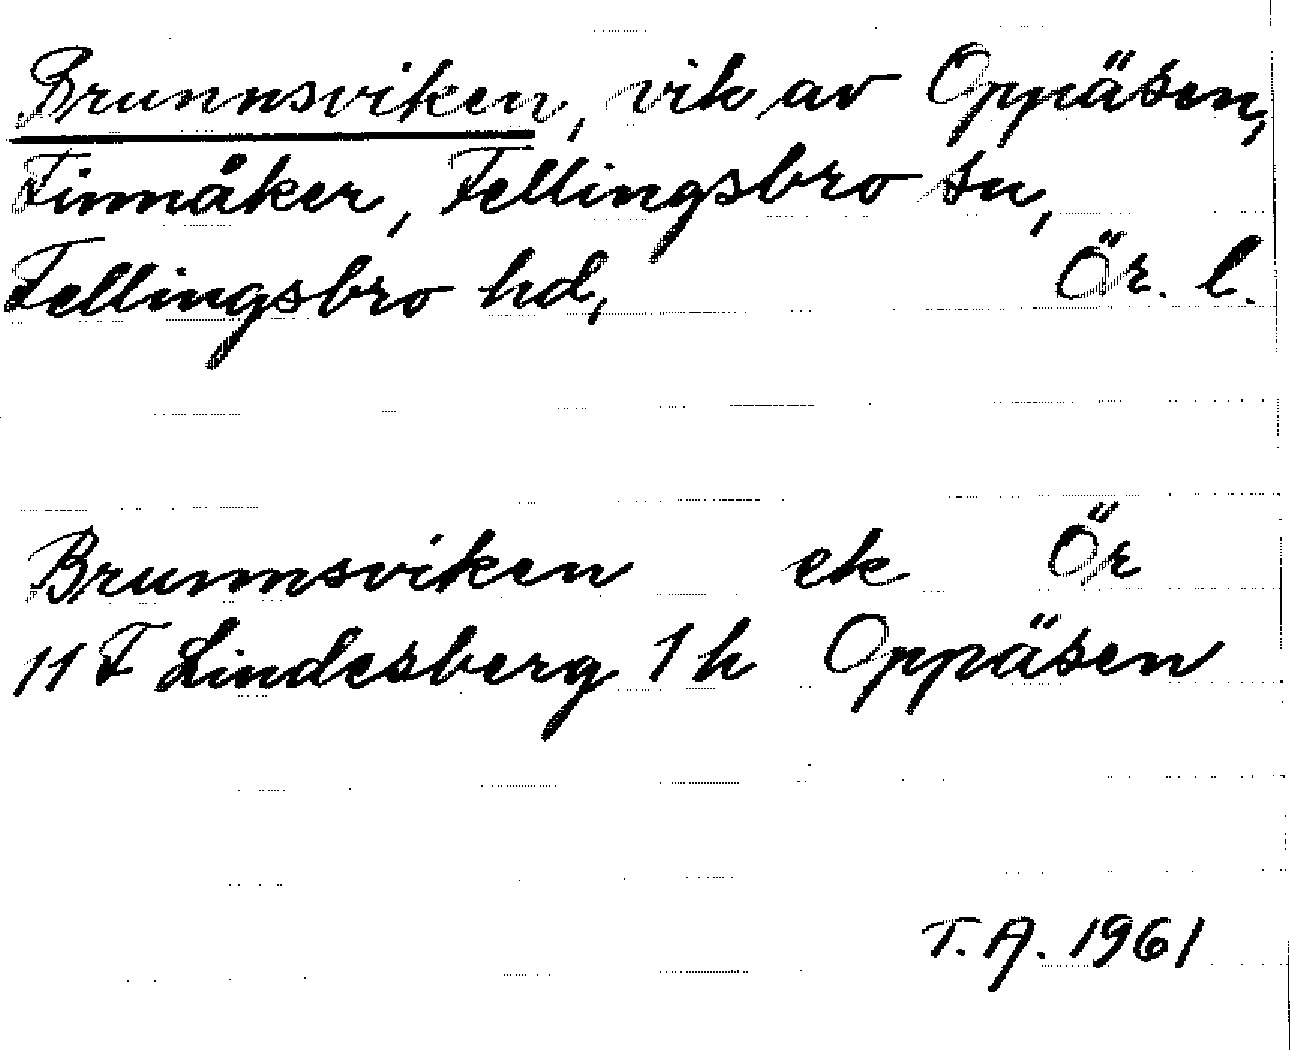 Brunnsviken, vik av Oppäsen,
Finnåker, Fellingsbro sn,
Fellingsbro hd, Ör. l.
Brunnsviken ek Ör
11 F Lindesberg 1 h Oppäsen
T. A. 1961